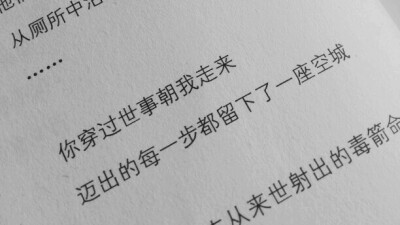 从厕所中
……
你穿过世事朝我走来
迈出的每一步都留下了一座空城
从来世射出的毒箭命